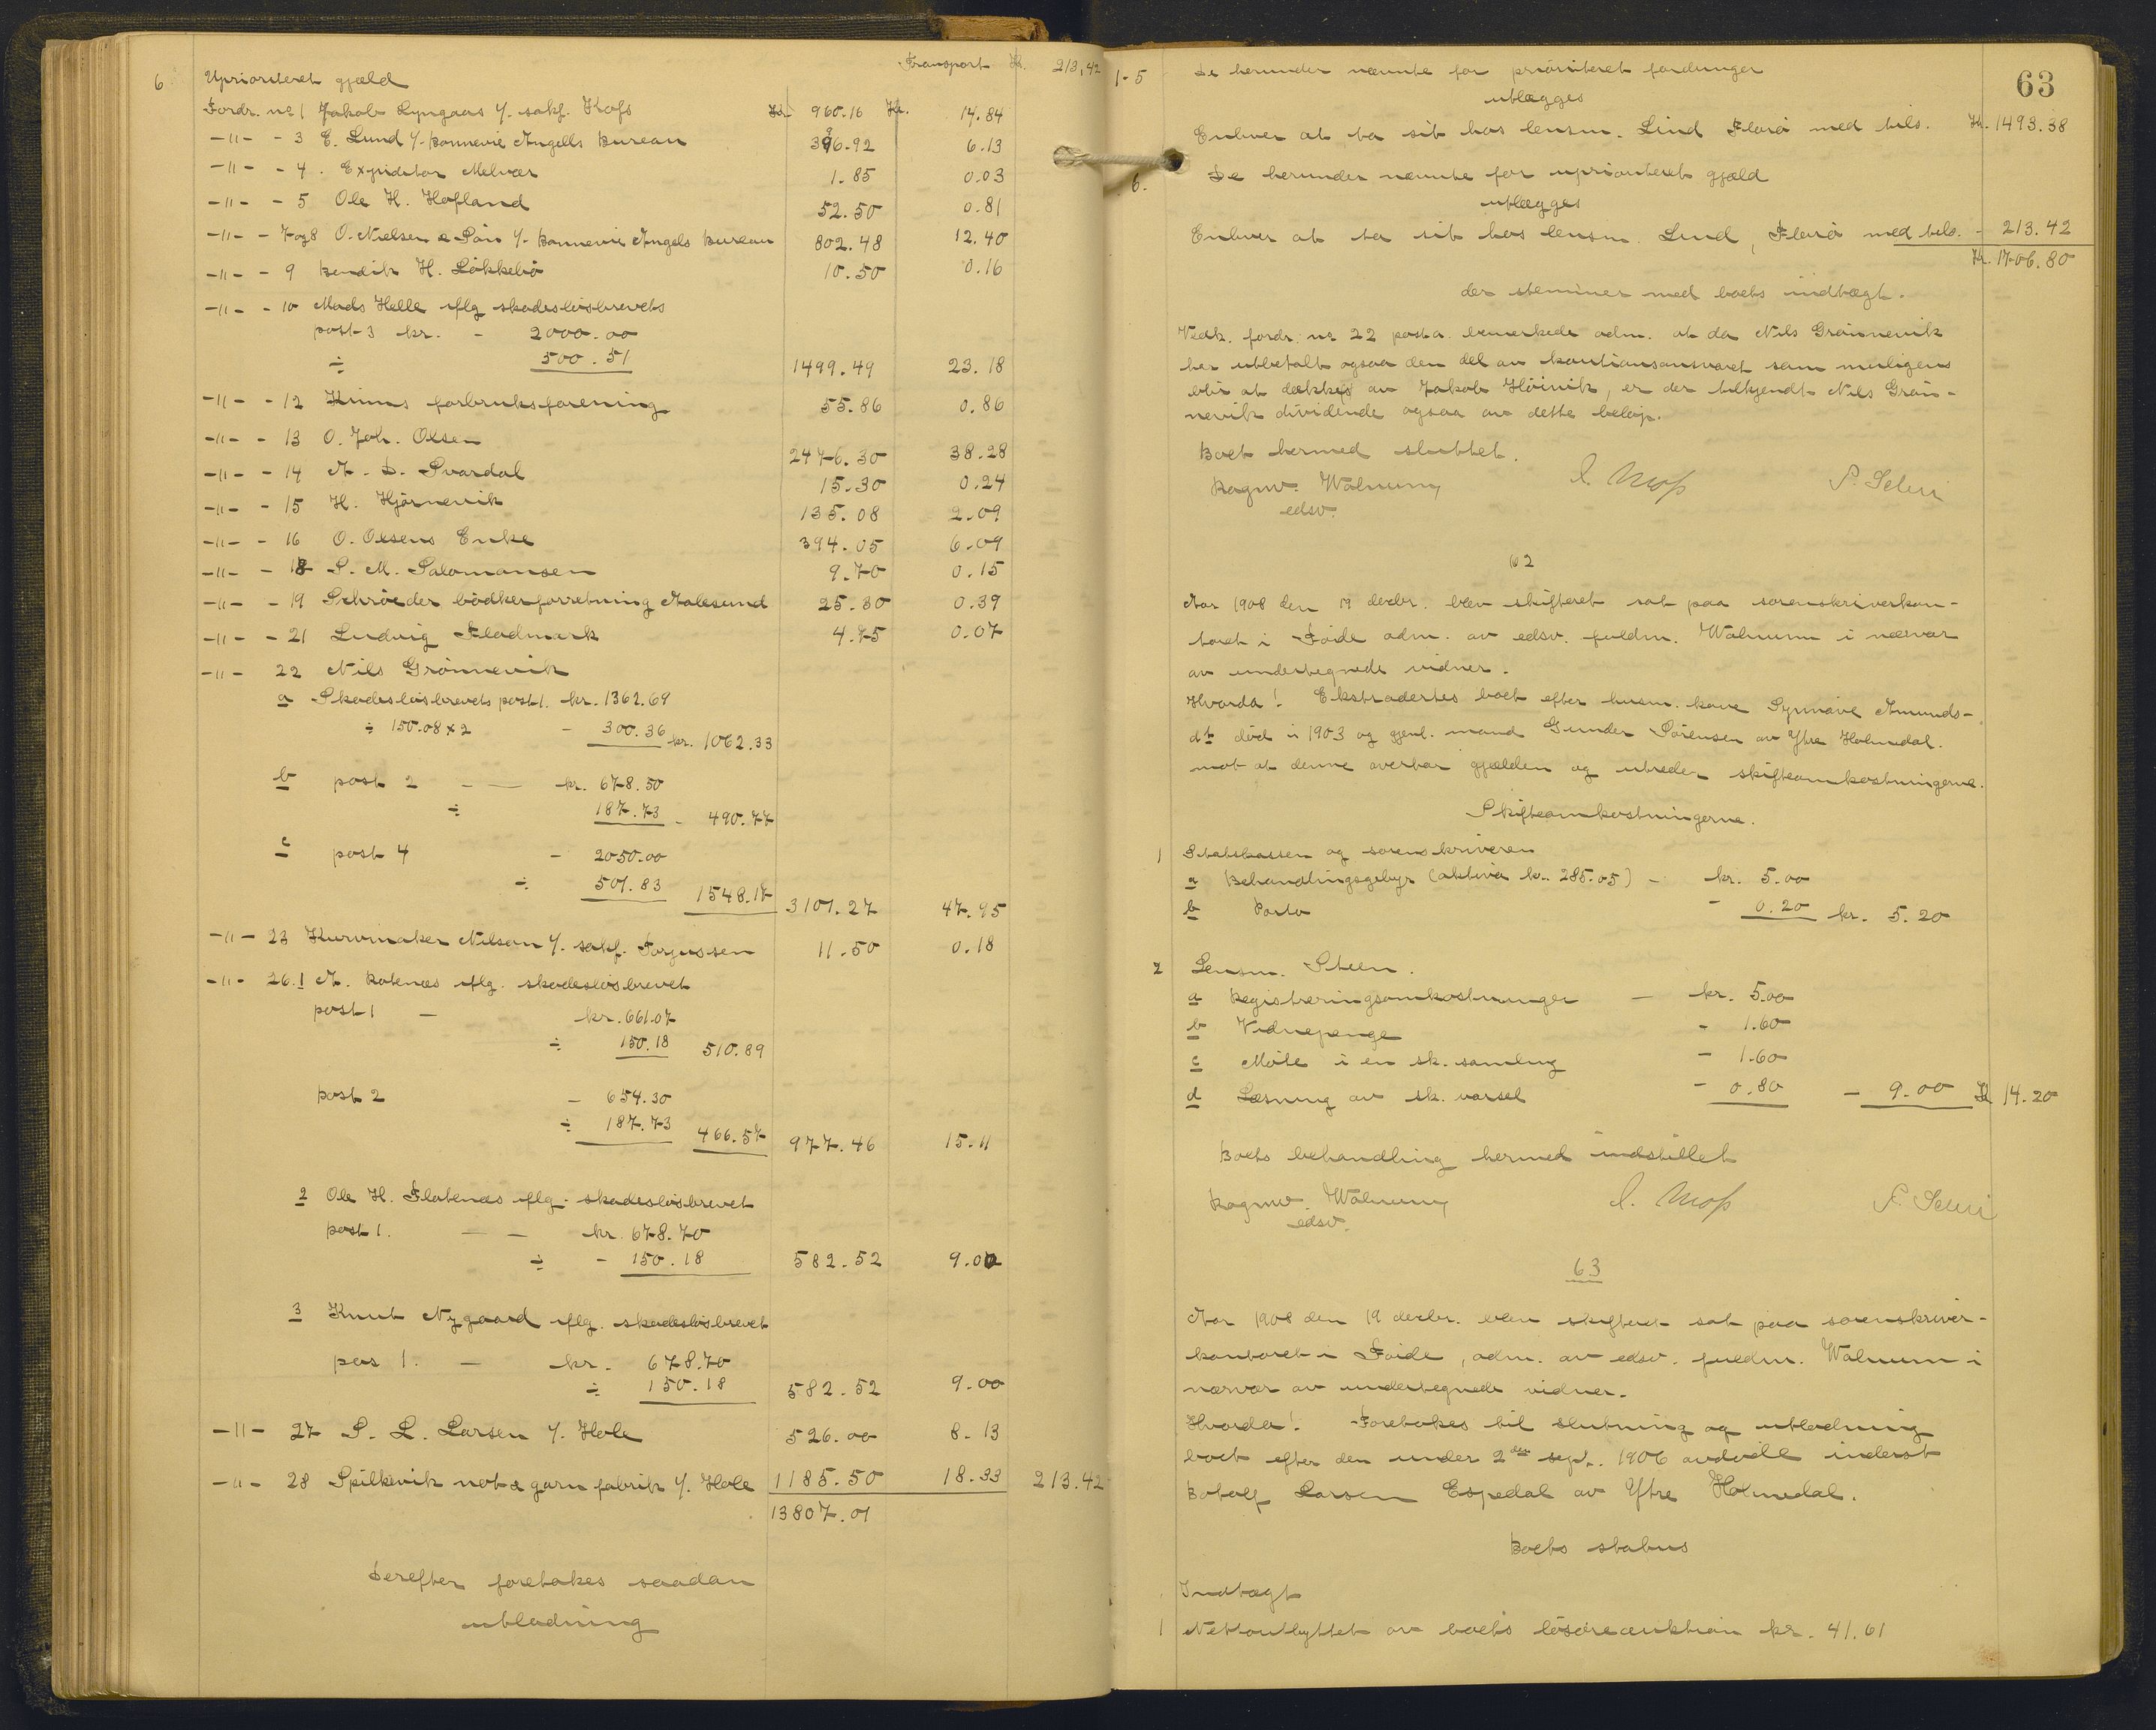 Transport Kr. 213,42
6 Uprioriteret gjæld
Fordr. no 1 Jakob Lyngaas v. sakf. Kofs Kr. 960.16 Kr. 14.84
-"- - 3 E. Lund v. Bonnevie Angells Bureau 396.92 6.13
-"- - 4. Expeditør Melvær 1.85 0.03
-"- - 5 Ole H. Hofland 52.50 0.81
-"- - 7 og 8 O. Nielsen & Søn v. Bonnevie Angels Bureau 802.48 12.40
-"- - 9 Bendik H. Løkkebø 10.50 0.16
-"- - 10 Mads Helle iflg skadesløsbrevets
post 3 kr. - 2000.00
÷ 500.51 1499.49 23.18
-"- - 12 Kinns forbruksforening 55.86 0.86
-"- - 13 O. Joh. Olsen 2476.30 38.28
-"- - 14 A. D. Svardal 15.30 0.24
-"- - 15 H. Hjørnevik 135.08 2.09
-"- - 16 O. Olsens Enke 394.05 6.09
-"- - 18 S. M. Salomonsen 9.70 0.15
-"- - 19 Schrøeder bødkerforretning Aalesund 25.30 0.39
-"- - 21 Ludvig Flodmark 4.75 0.07
-"- 22 Nils Grønnevik
a Skadesløsbrevets post 1. kr. 1362.69
÷ 150.08 x 2 - 300.36 kr. 1062.33
b post 2 - — kr. 678.50
÷ 187.73 - 490.77
c post 4 - 2050.00
÷ 501.83 1548.17 3101.27 47.95
-"- 23 Kurvmaker Nilsen v. sakf. Torjussen 11.50 0.18
-"- 26.1 A. Botnnæs iflg. skadesløsbrevet
post 1 — kr. 661.07
÷ 150.18 510.89
post 2 - 654.30
÷ 187.73 466.57 977.46 15.11
2 Ole H. Flatenæs iflg. skadesløsbrevet
post 1. — — kr. 678.70
÷ - 150.18 582.52 9.00
3 Knut Nygaard iflg. skadesløsbrevet
pos 1. — kr. 678.70
÷ 150.18 582.52 9.00
-"- 27 S. L. Larsen v. Hole 526.00 8.13
-"- 28 Spilkevik not & garn fabrik v. Hole 1185.50 18.33 213.42
13807.01
Derefter foretakes saadan
utlodning
63
1-5 De herunder nævnte for prioriteret fordringer
utlægges
Enhver at ta sit hos lensm. Lind Florø med tils. Kr. 1493.38
6. De herunder nævnte for uprioriteret gjæld
utlægges
Enhver at ta sit hos lensm. Lind, Florø med tils. - 213.42
Kr. 1706.80
der stemmer med boets indtægt.
Vedk. fordr. nr 22 post a. bemerkede adm. at da Nils Grønnevik
har utbetalt ogsaa den del av kautionsansvaret som muligens
blir at dækkes av Jakob Høivik, er der tilkjendt Nils Grøn-
nevik dividende ogsaa av dette beløp.
Boet hermed sluttet.
Ragnv. Walnum
edsv.
I. Moss
P. Seljei
62
Aar 1908 den 19 decbr. blev skifteret sat paa sorenskriverkon-
toret i Førde adm. av edsv. fuldm. Walnum i nærvær
av undertegnede vidner.
Hvorda! Ekstradertes boet efter husm. kone Synnøve Amunds-
dt død i 1903 og gjenl. mand Gunder Sørensen av Ytre Holmedal.
mot at denne overtar gjælden og utreder skifteomkostningerne.
Skifteomkostningerne.
1 Statskassen og sorenskriveren
a Behandlingsgebyr (aktiva kr. 285.05) - kr. 5.00
b Porto - 0.20 kr. 5.20
2 Lensm. Steen.
a Registreringsomkostninger — kr. 5.00
b Vidnepenge - 1.60
c Møte i en sk. samling - 1.60
d Læsning av sk. varsel - 0.80 - 9.00 Kr 14.20
Boets behandling hermed indstillet
Ragnv. Walnum
edsv.
I. Moss
63
Aar 1908 den 19 decbr. blev skifteret sat paa sorenskriver-
kontoret i Førde, adm. av edsv. fuldm. Walnum i
nærvær av undertegnede vidner.
Hvorda! Foretokes til slutning og utlodning
boet efter den under 2den sept. 1906 avdøde inderst
Botolf Larsen Espedal av Ytre Holmedal.
Boets status
Indtægt
1 Nettoutbyttet av boets løsøreauktion kr. 41.61